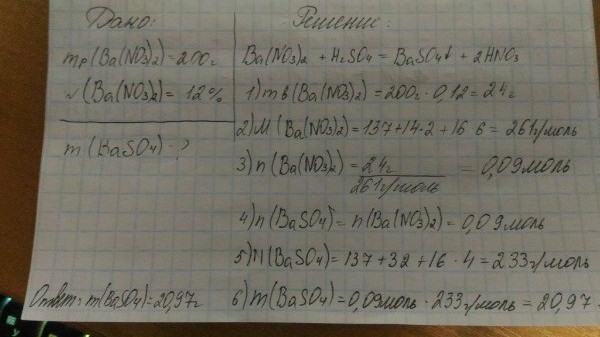 Дано:
mр(Ba(NO3)2)=200г
w(Ba(NO3)2)=12%
m(BaSO4)-?
Решение:
Ba(NO3)2 + H2SO4 = BaSO4↓ + 2HNO3
1) m в(Ba(NO3)2) = 200г · 0,12 = 24г
2) M(Ba(NO3)2) = 137+14·2+16·6 = 261г/моль
3) n(Ba(NO3)2) = 24г / 261г/моль = 0,09моль
4) n(BaSO4) = n(Ba(NO3)2) = 0,09моль
5) M(BaSO4) = 137+32+16·4 = 233г/моль
6) m(BaSO4) = 0,09моль · 233г/моль = 20,97
Ответ: m(BaSO4) = 20,97г